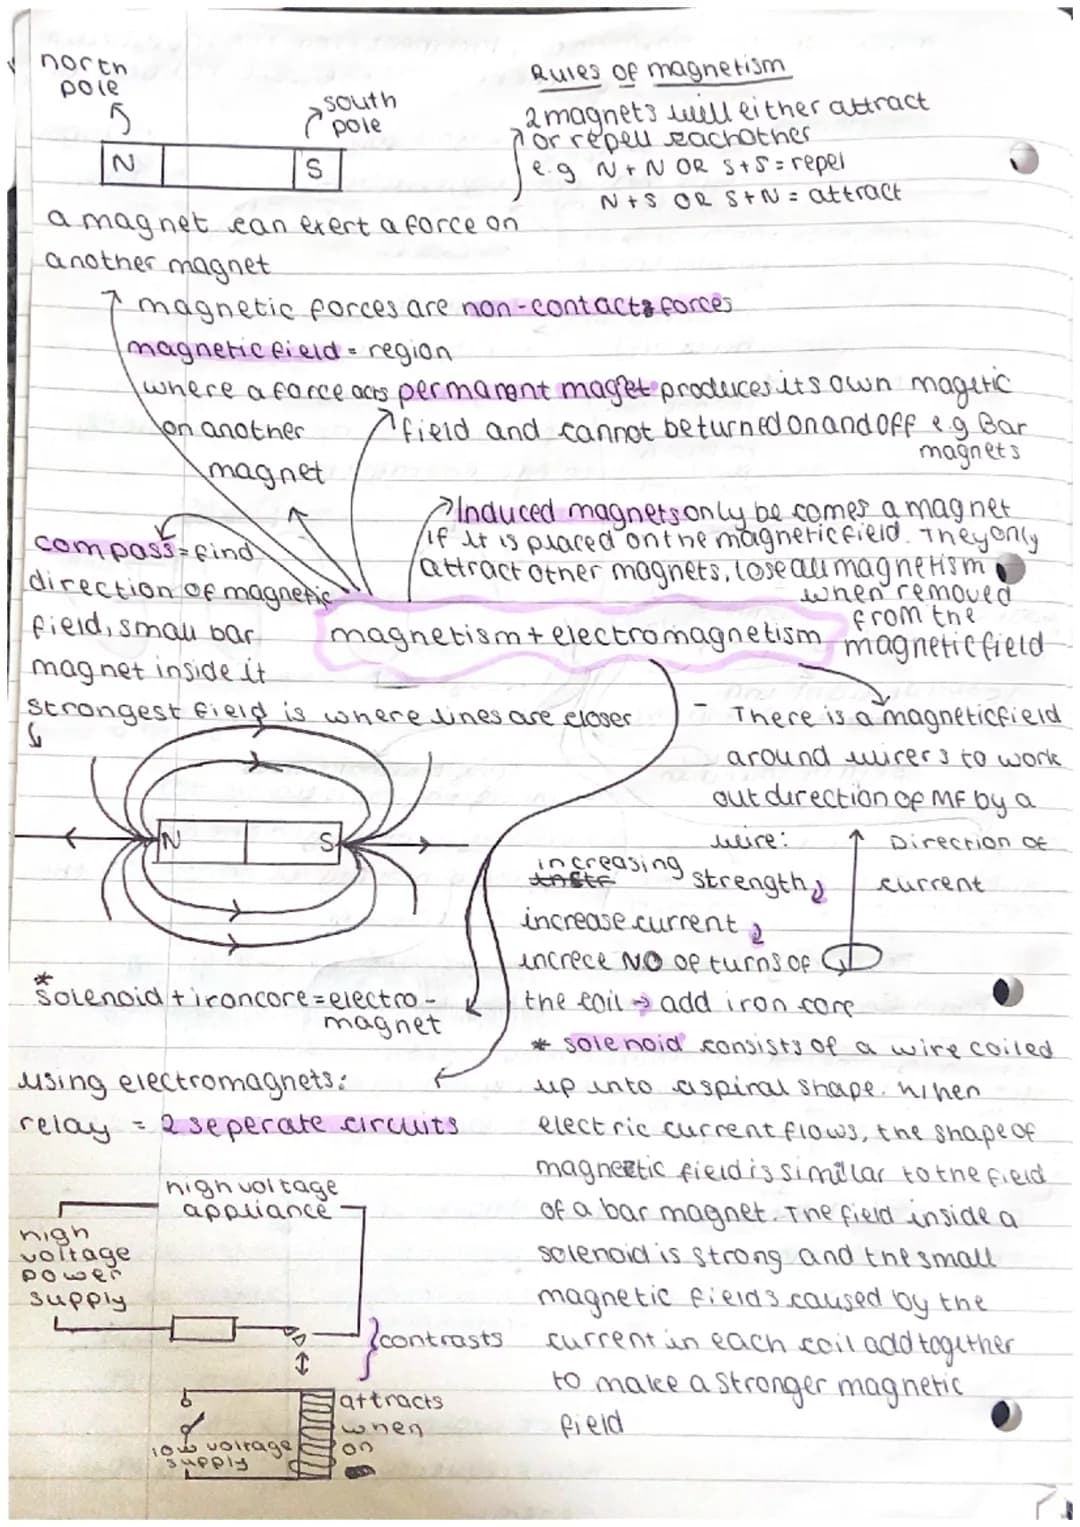 north
pole
south
pole
N
S
Rules of magnetism
2 magnets will either attract
or repell eachother
e.g N + N OR S + S = repel
N + S OR S + N = attract
a magnet can exert a force on
another magnet
magnetic forces are non-contact forces
magnetic field = region
where a force acts
on another
magnet
permanent magnet produces its own magetic
field and cannot be turned on and off e.g Bar
magnets
Induced magnets only becomes a magnet
if it is placed on the magnetic field. They only
attract other magnets, lose all magnetism
when removed
from the
magnetic field
compass = find
direction of magnetic
field, small bar
magnet inside it
magnetism + electromagnetism
strongest field is where lines are closer
N
S
- There is a magnetic field
around wirers to work
out direction of MF by a
wire:
Direction of
current
increasing
strength
increase current
increce NO of turns of
the coil → add iron core
* solenoid + iron core = electro-
magnet
* solenoid consists of a wire coiled
up into a spiral shape. When
electric current flows, the shape of
magnetic field is similar to the field
of a bar magnet. The field inside a
solenoid is strong and the small
magnetic fields caused by the
current in each coil add together
to make a stronger magnetic
field
using electromagnets:
relay = 2 seperate circuits
high voltage
appliance
high
voltage
power
supply
contrasts
attracts
when
on
low voltage
supply